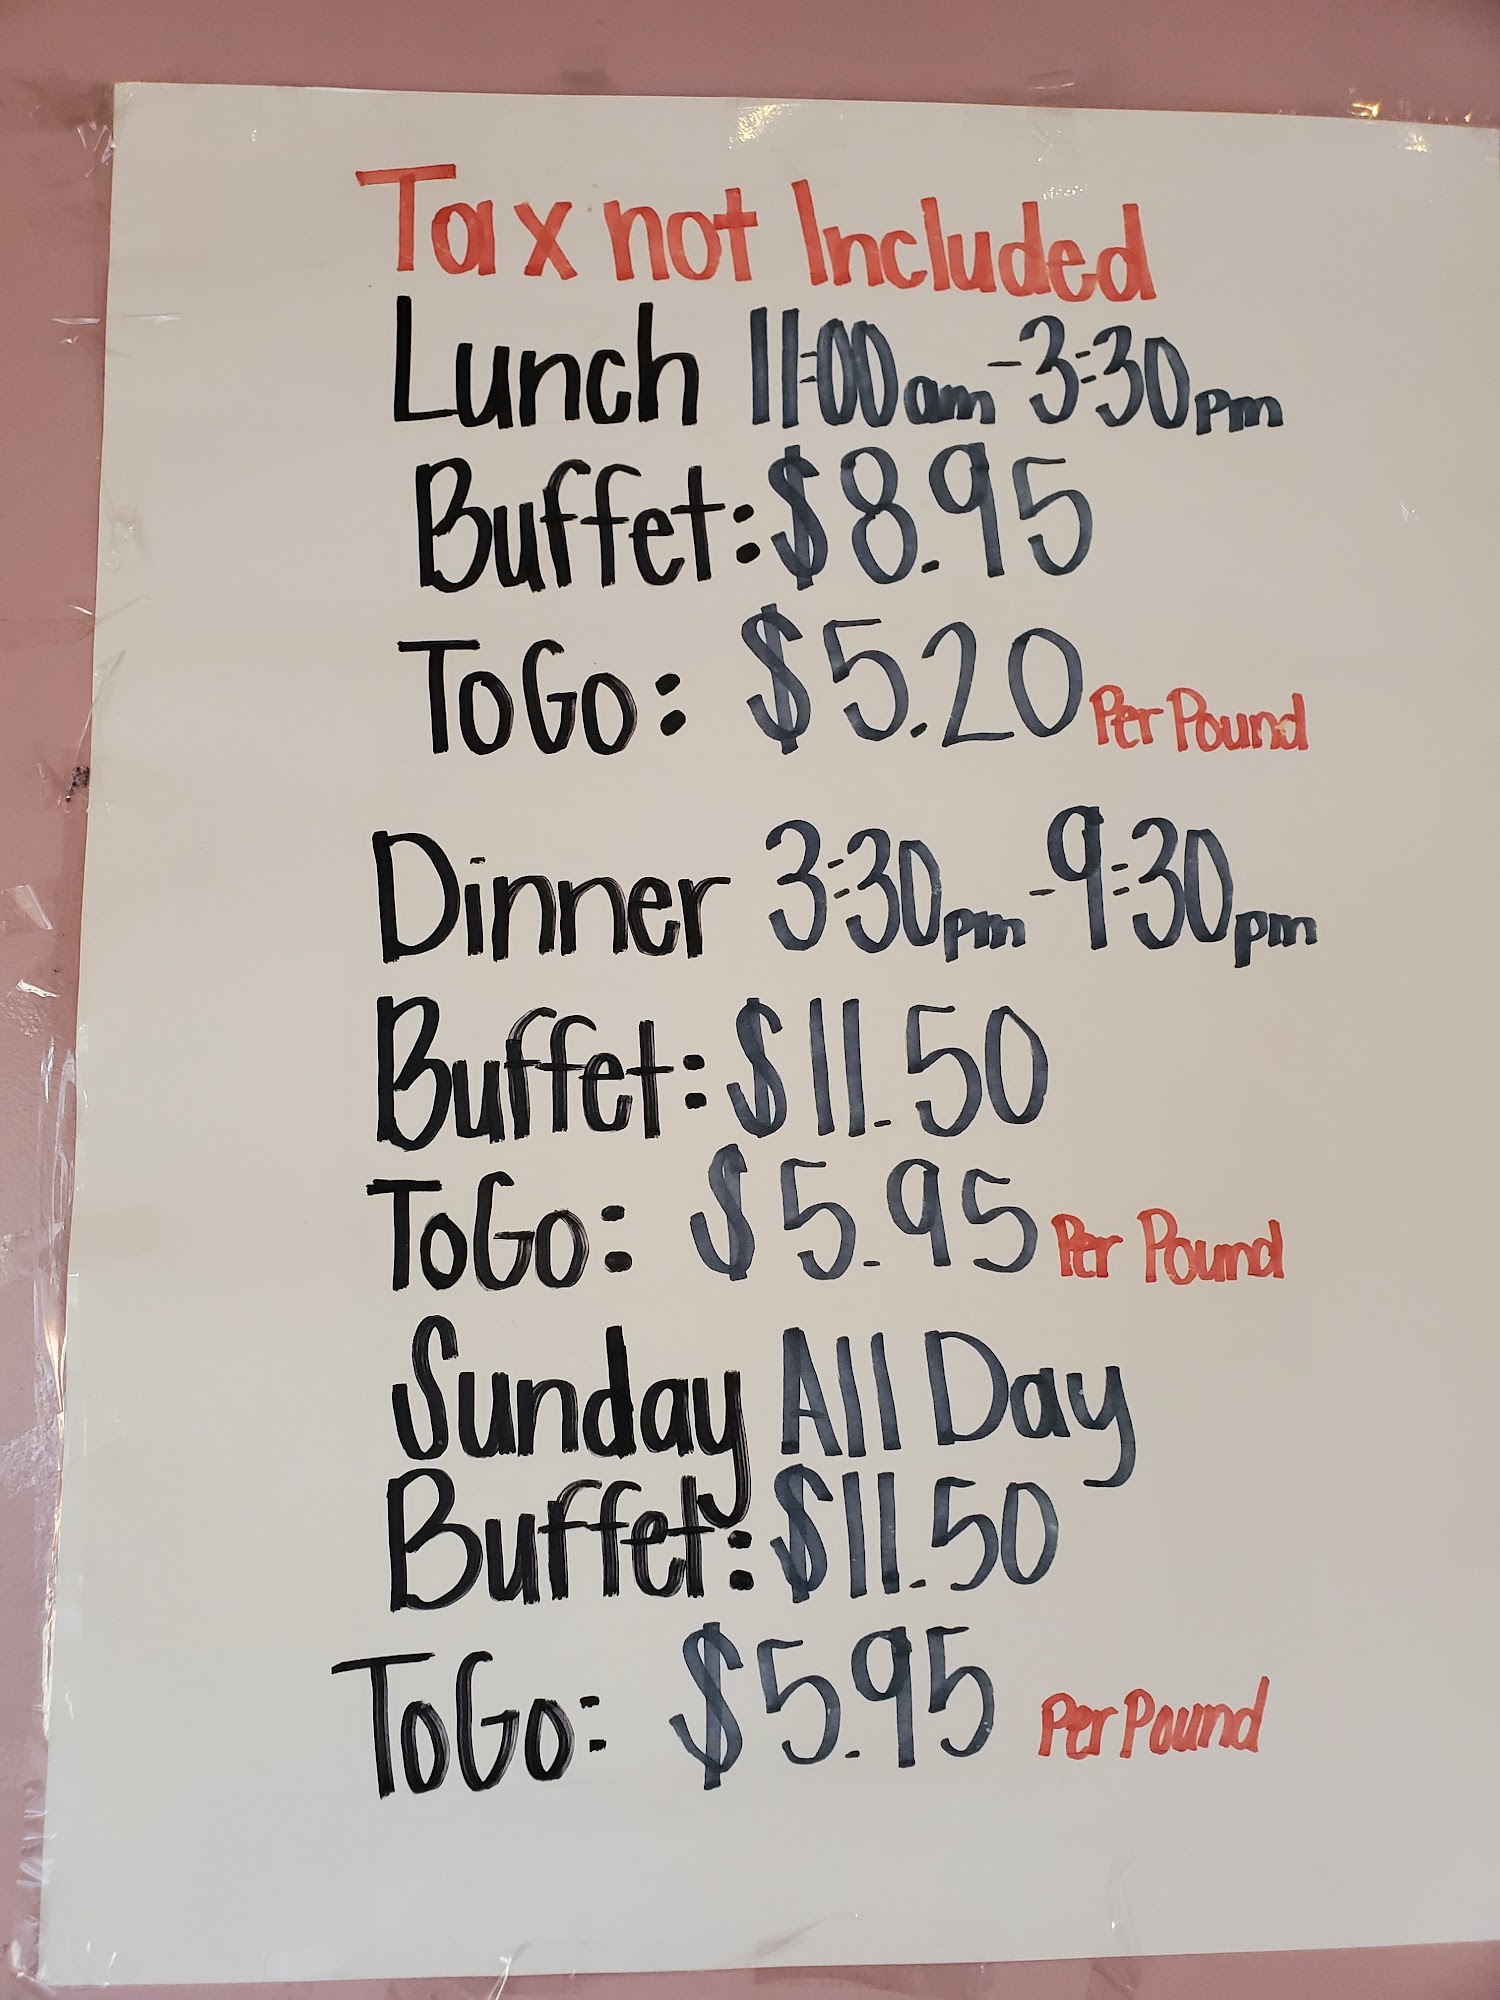 Tax not Included
Lunch 11:00am-3:30pm
Buffet: $8.95
ToGo: $5.20 Per Pound
Dinner 3:30pm-9:30pm
Buffet: $11.50
ToGo: $5.95 Per Pound
Sunday All Day
Buffet: $11.50
ToGo: $5.95 Per Pound